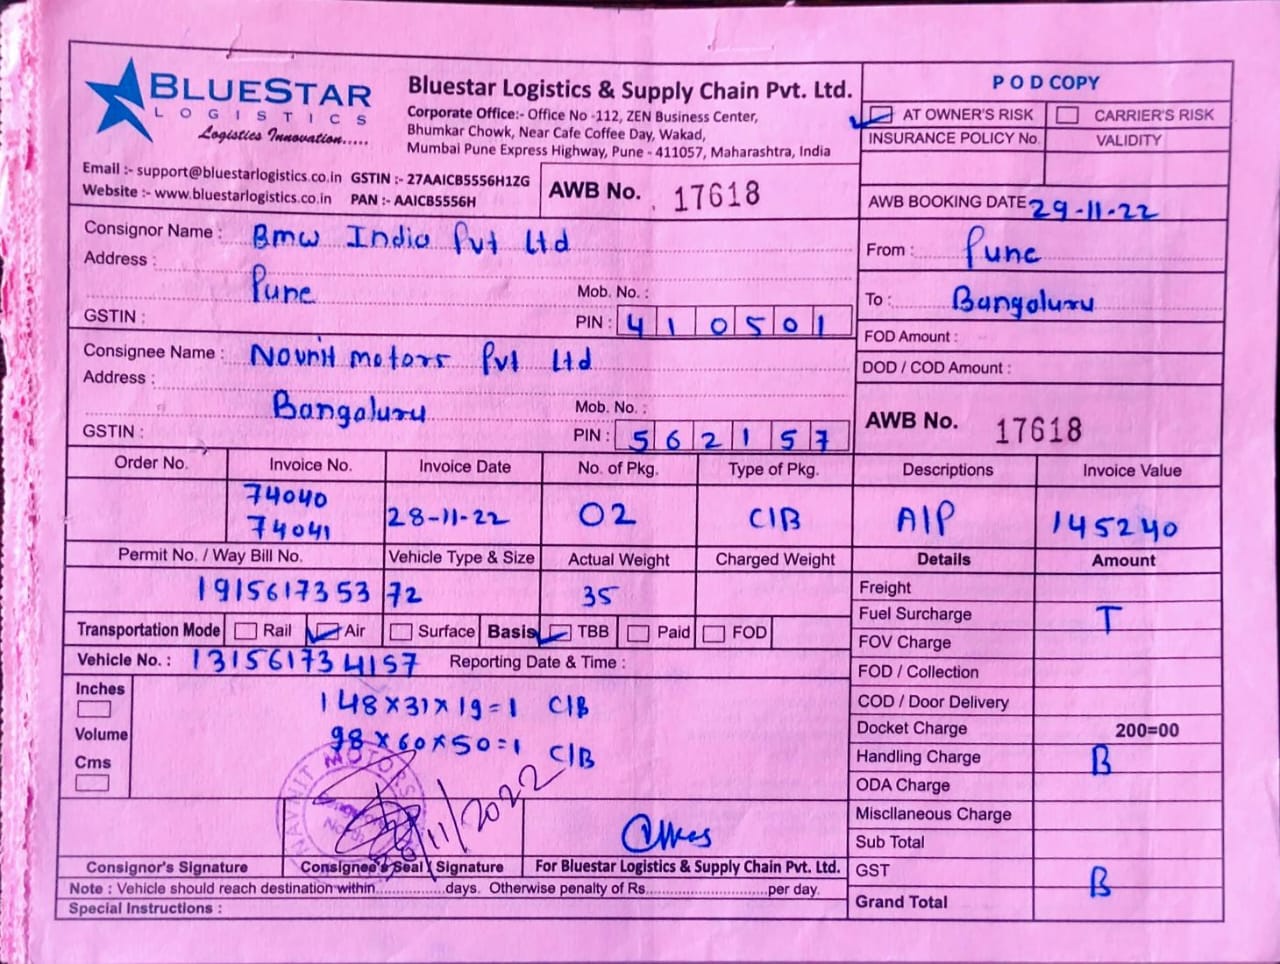 BLUESTAR
LOGISTICS
Logistics Innovation.....
Bluestar Logistics & Supply Chain Pvt. Ltd.
Corporate Office:- Office No -112, ZEN Business Center,
Bhumkar Chowk, Near Cafe Coffee Day, Wakad,
Mumbai Pune Express Highway, Pune - 411057, Maharashtra, India
Email :- support@bluestarlogistics.co.in GSTIN :- 27AAICB5556H1ZG
Website :- www.bluestarlogistics.co.in PAN :- AAICB5556H
AWB No. 17618
POD COPY
AT OWNER'S RISK CARRIER'S RISK
INSURANCE POLICY No. VALIDITY
AWB BOOKING DATE 29-11-22
Consignor Name : Bmw India Pvt Ltd
Address :
Pune
Mob. No. :
GSTIN :
PIN : 410501
From : Pune
To : Bangaluru
FOD Amount :
DOD / COD Amount :
Consignee Name : Navnit motors Pvt Ltd
Address :
Bangaluru
Mob. No. :
GSTIN :
PIN : 562157
AWB No. 17618
Order No. Invoice No. Invoice Date No. of Pkg. Type of Pkg. Descriptions Invoice Value
74040
74041 28-11-22 02 C/B A/P 145240
Permit No. / Way Bill No. Vehicle Type & Size Actual Weight Charged Weight Details Amount
191561735372 35
Transportation Mode Rail Air Surface Basis TBB Paid FOD
Vehicle No. : 131561734157 Reporting Date & Time :
Inches
Volume
Cms
148x31x19=1 C/B
98x60x50=1 C/B
Freight
Fuel Surcharge T
FOV Charge
FOD / Collection
COD / Door Delivery
Docket Charge 200=00
Handling Charge B
ODA Charge
Miscllaneous Charge
Sub Total
GST B
Grand Total
NAVNIT MOTORS
/11/2022
Consignor's Signature Consignee's Seal Signature For Bluestar Logistics & Supply Chain Pvt. Ltd.
Note : Vehicle should reach destination within..............days. Otherwise penalty of Rs..........................per day.
Special Instructions :